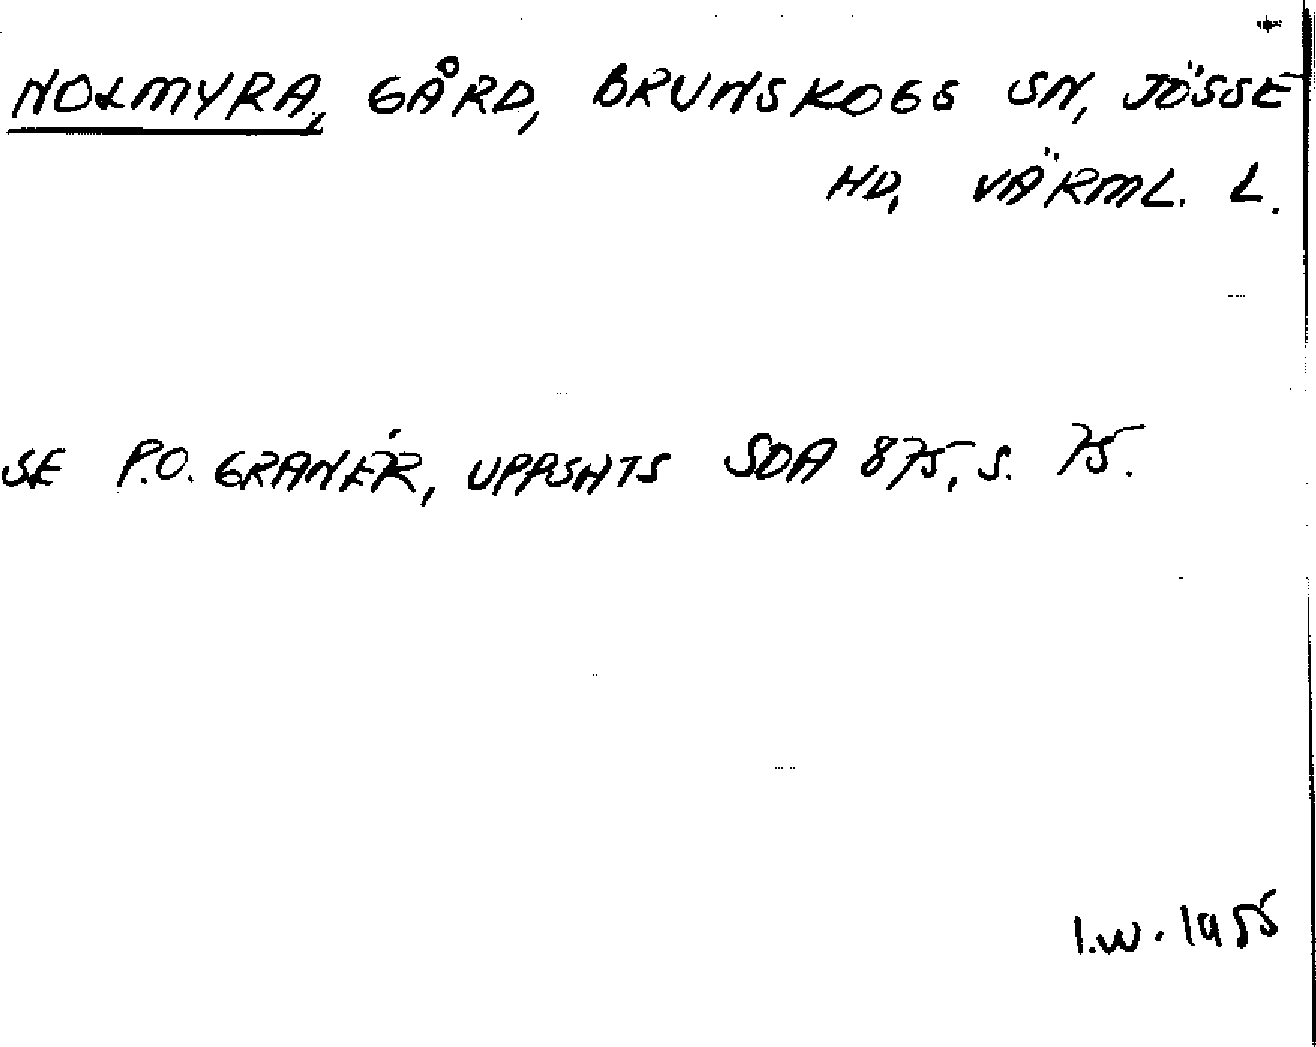 NOLMYRA, GÅRD, BRUNSKOGS SN, JÖSSE
HD, VÄRML. L.
SE P.O. GRANÉR, UPPSATS SOA 875, S. 75.
I.W. 1955